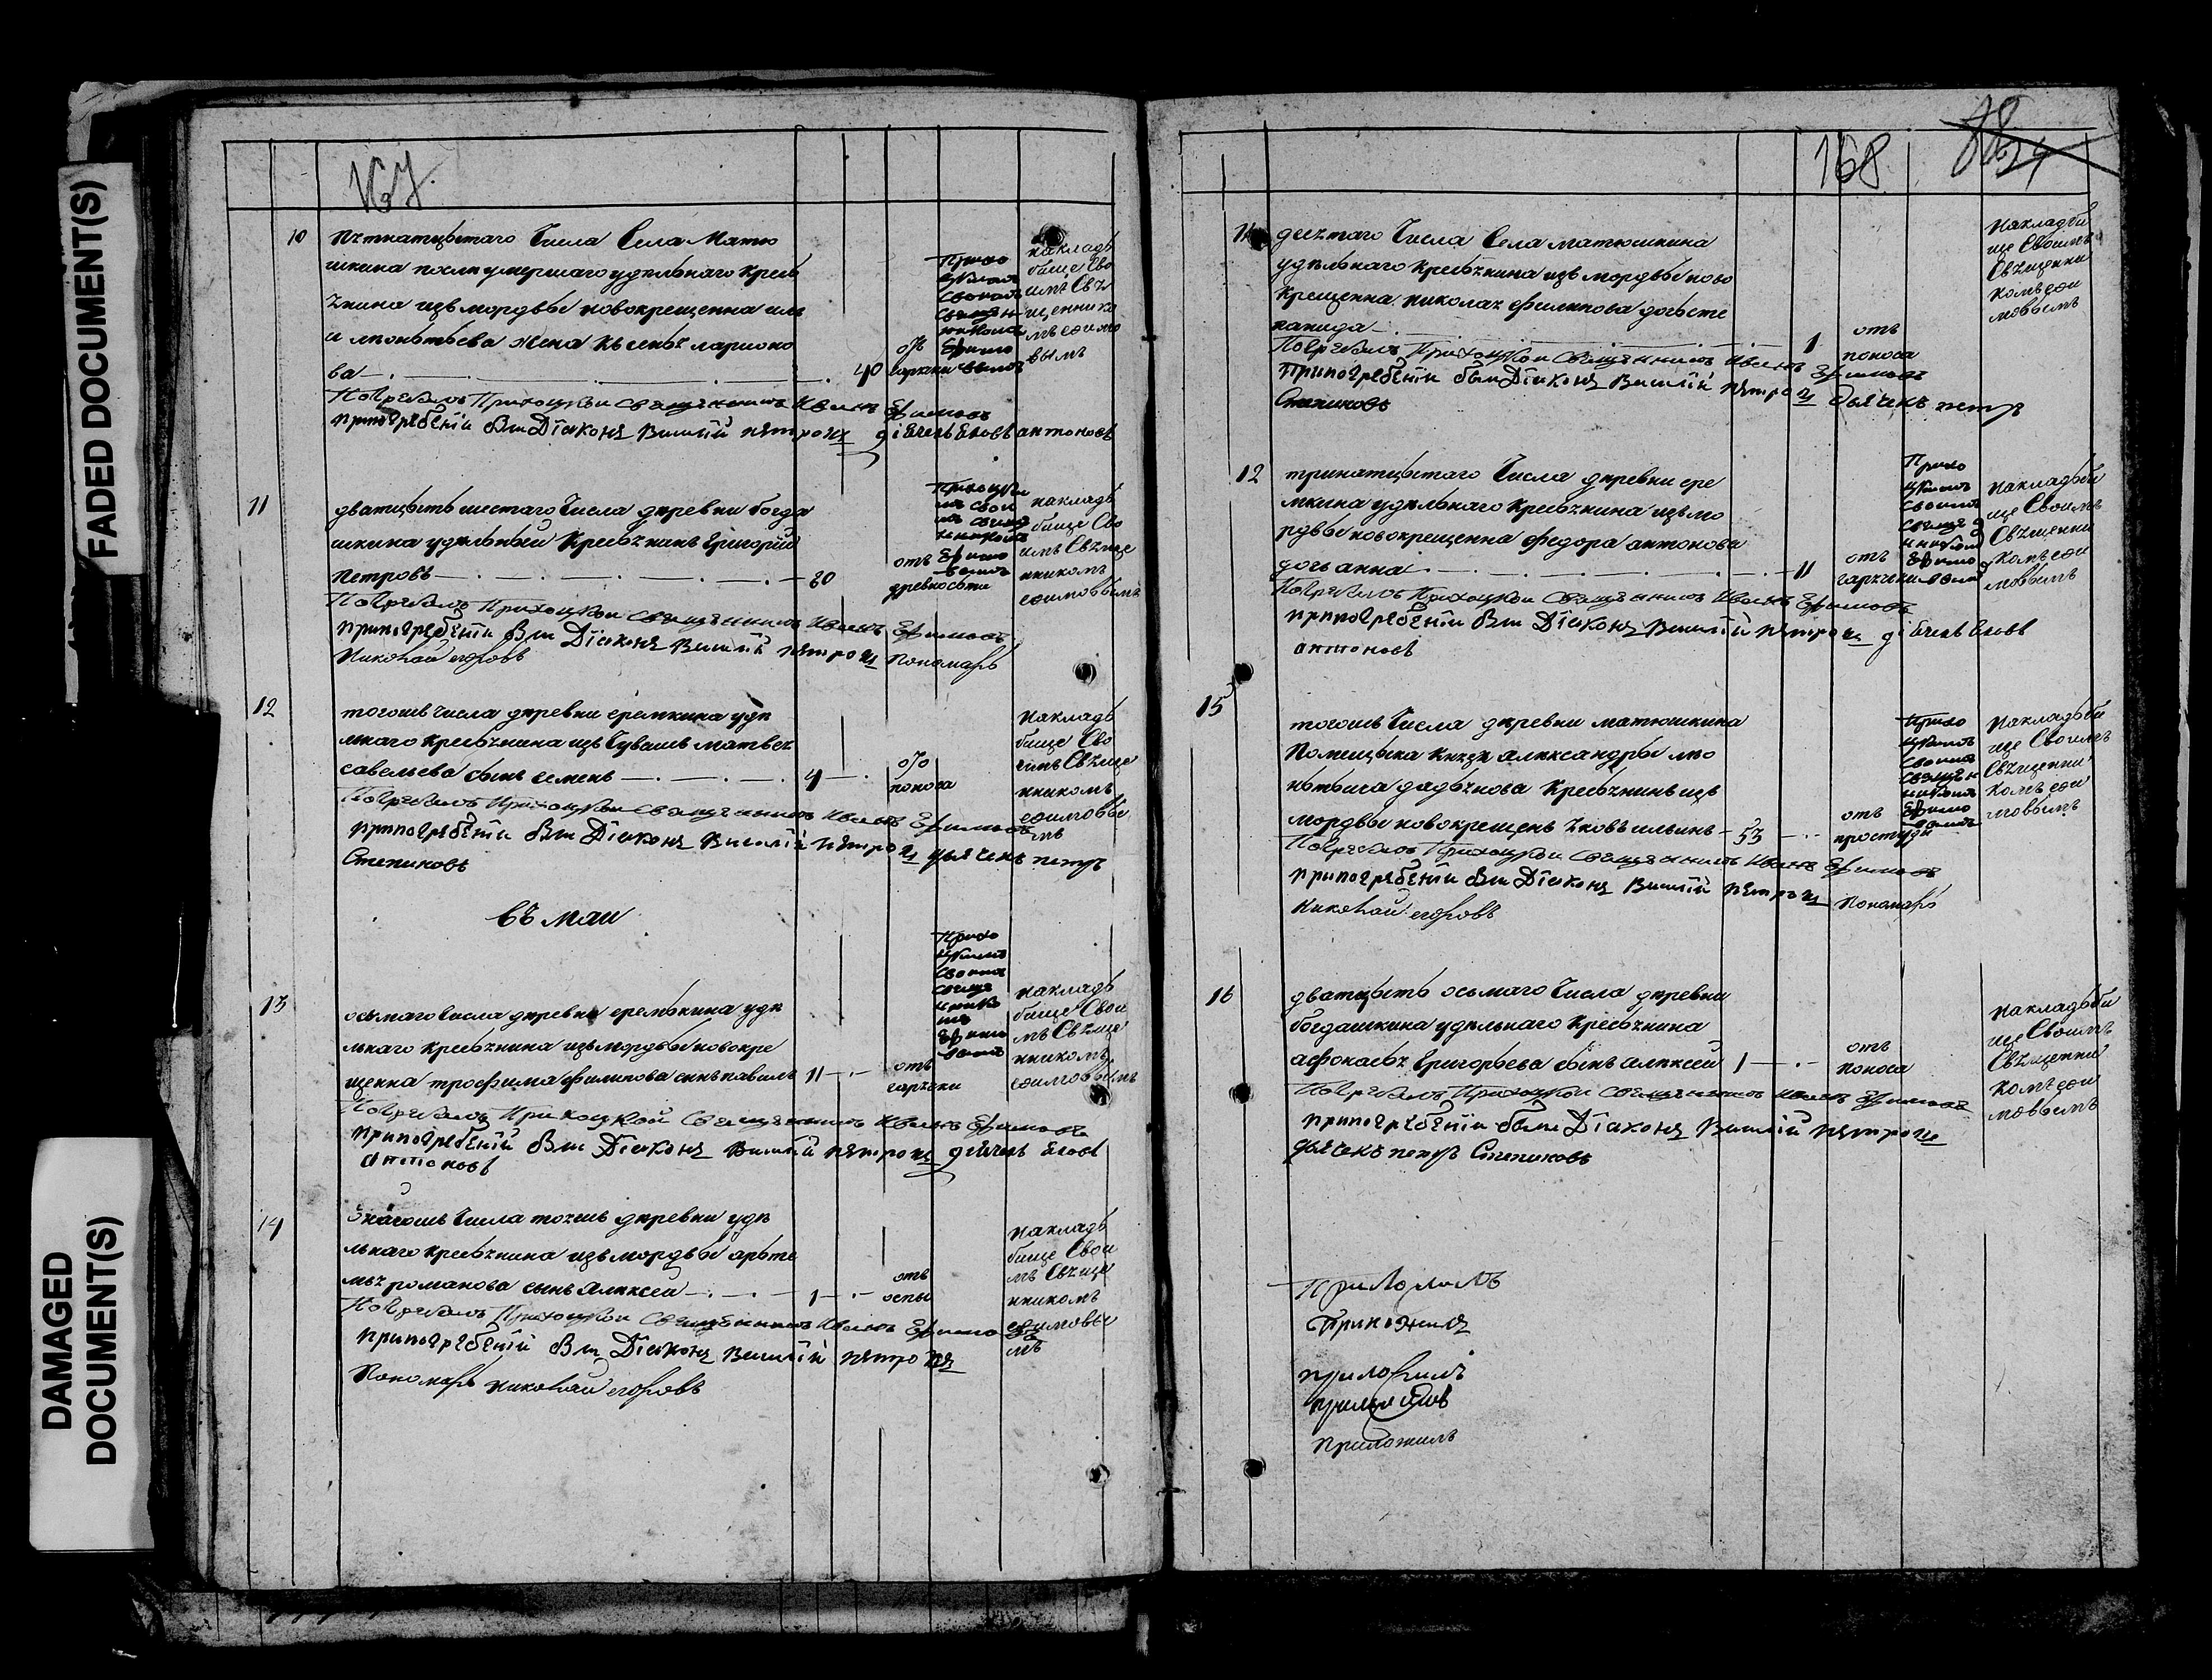 FADED DOCUMENT(S)
DAMAGED
DOCUMENT(S)
167
10 пятнатцетаго Числа Села Матю
шкина после умершаго удельнаго кресть
янина изъ мордвы новокрещенна иль
и леонтьева жена
ва 40 отъ горячки
Погребалъ Приходцкой священникъ Иванъ Ефимовъ
при погребении были Діаконъ Василій Петровъ дьячекъ Яковъ антоновъ
Прихо
цкимъ
своимъ
священ
никомъ
Ефимо
вымъ
на кладь
бище Сво
имъ Свя
щеннико
мъ ефимо
вымъ
11 дватцеть шестаго Числа деревни богда
шкина удельный Крестьянинъ Григорий
Петровъ 80 отъ древности
Погребалъ Приходцкой священникъ Иванъ Ефимовъ
при погребении были Діаконъ Василій Петровъ Пономарь
Николай егоровъ
Приходцки
мъ свои
мъ священ
никомъ
Ефимо
вымъ
на кладь
бище Сво
имъ Свяще
нникомъ
ефимовымъ
12 тогожъ числа деревни еремкина уде
льнаго крестьянина изъ Чувашъ матвея
савельева сынъ семенъ 4 отъ поноса
Погребалъ Приходцкой священникъ Иванъ Ефимовъ
при погребении были Діаконъ Василій Петровъ дьячекъ петръ
Степановъ
на кладь
бище Сво
имъ Свяще
нникомъ
ефимовы
мъ
въ маи
13 осьмаго Числа деревни еремькина уде
льнаго крестьянина изъ мордвы новокре
щенна трофима филипова сынъ павилъ 11 отъ горячки
Погребалъ Приходцкой Священникъ Иванъ Ефимовъ
при погребении были Діаконъ Василій Петровъ дьячекъ Яковъ
антоновъ
Прихо
цкимъ
своимъ
священ
нико
мъ
Ефимо
вымъ
на кладь
бище Свои
мъ Свяще
нникомъ
ефимовымъ
14 онагожъ Числа тояжъ деревни уде
льнаго крестьянина изъ мордвы арьте
мья романова сынъ алексеи 1 отъ оспы
Погребалъ Приходцкой Священникъ Иванъ Ефимовъ
при погребении были Діаконъ Василій Петровъ
Пономарь николай егоровъ
на кладь
бище Свои
мъ Свяще
нникомъ
ефимовы
мъ
168
11 десятаго Числа Села матюшкина
удельнаго крестьянина изъ мордвы ново
крещенна николая филипова дочь сте
панида 1 отъ поноса
Погребалъ Приходцкой Священникъ Иванъ Ефимовъ
При погребении были Діаконъ Василій Петровъ дьячекъ петръ
Степановъ
на кладьби
ще Своимъ
Священни
комъ ефи
мовымъ
12 тринатцетаго Числа деревни ере
мкина удельнаго Крестьянина изъ мо
рдвы новокрещенна федора антонова
дочь анна 11 отъ горячки
Погребалъ Приходцкой Священникъ Иванъ Ефимовъ
при погребении были Діаконъ Василій Петровъ дьячекъ Яковъ
антоновъ
Прихо
цкимъ
своимъ
священ
никомъ
Ефимо
вымъ
на кладьби
ще Своимъ
Священни
комъ ефи
мовымъ
15 тогожъ Числа деревни матюшкина
Помещика Князя александры лео
нтьича дадьянова Крестьянинъ изъ
мордвы новокрещенъ яковъ ильинъ 53 отъ простуды
Погребалъ Приходцкой Священникъ Иванъ Ефимовъ
при погребении были Діаконъ Василій Петровъ Пономарь
Николай егоровъ
Прихо
цкимъ
своимъ
священ
никомъ
Ефимо
вымъ
на кладьби
ще Своимъ
Священни
комъ ефи
мовымъ
16 дватцеть осьмаго Числа деревни
богдашкина удельнаго Крестьянина
афонасья Григорьева сынъ алексей 1 отъ поноса
Погребалъ Приходцкой Священникъ Иванъ Ефимовъ
при погребении были Діаконъ Василій Петровъ
дьячекъ петръ Степановъ
на кладьби
ще Своимъ
Священни
комъ ефи
мовымъ
Приложилъ
Приложилъ
приложилъ
приложилъ
приложилъ